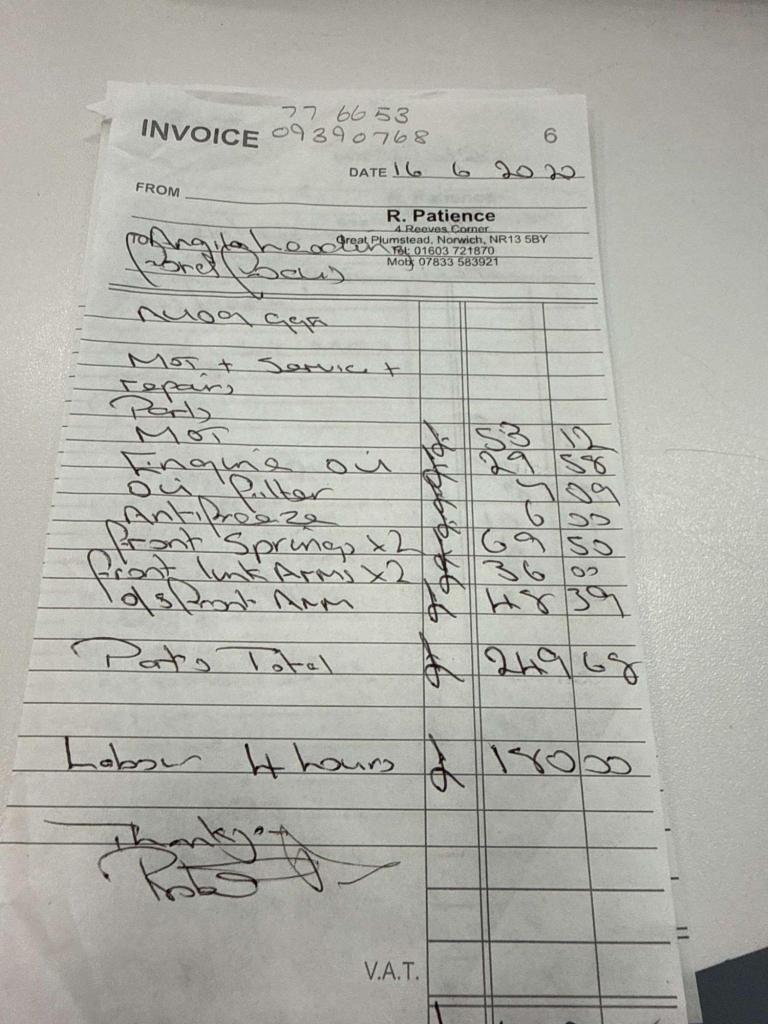 77 6653
INVOICE 09390768 6
DATE 16 6 2022
FROM
R. Patience
4 Reeves Corner
Great Plumstead, Norwich, NR13 5BY
Tel: 01603 721870
Mob: 07833 583921
To
MOT + Service +
repairs
Parts
MOT £ 53 12
Engine oil £ 29 58
Oil filter £ 7 09
Antifreeze £ 6 00
front Springs x2 £ 69 50
front link Arms x2 £ 36 00
o/s front Arm £ 48 39
Parts Total £ 249 68
Labour 4 hours £ 180 00
Thankyou
V.A.T.